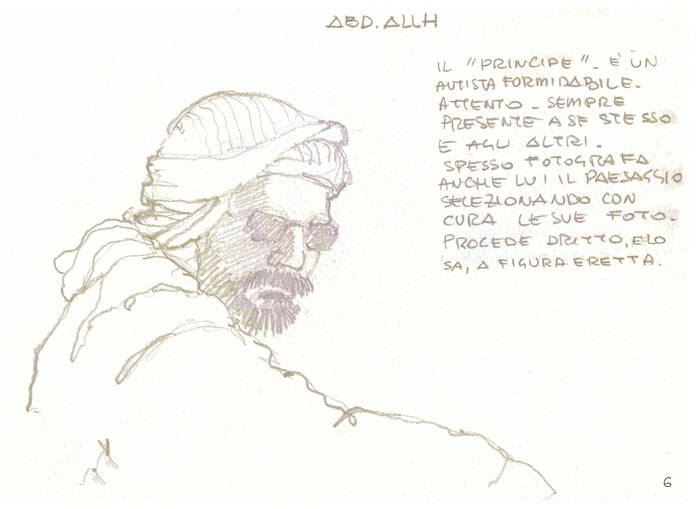 ABD. ALLH
IL "PRINCIPE". È UN
AUTISTA FORMIDABILE.
ATTENTO - SEMPRE
PRESENTE A SE STESSO
E AGLI ALTRI.
SPESSO FOTOGRAFA
ANCHE LUI IL PAESAGGIO
SELEZIONANDO CON
CURA LE SUE FOTO.
PROCEDE DRITTO, E LO
SA, A FIGURA ERETTA.
6